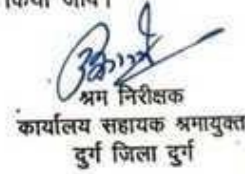 किया जाये।
श्रम निरीक्षक
कार्यालय सहायक श्रमायुक्त
दुर्ग जिला दुर्ग